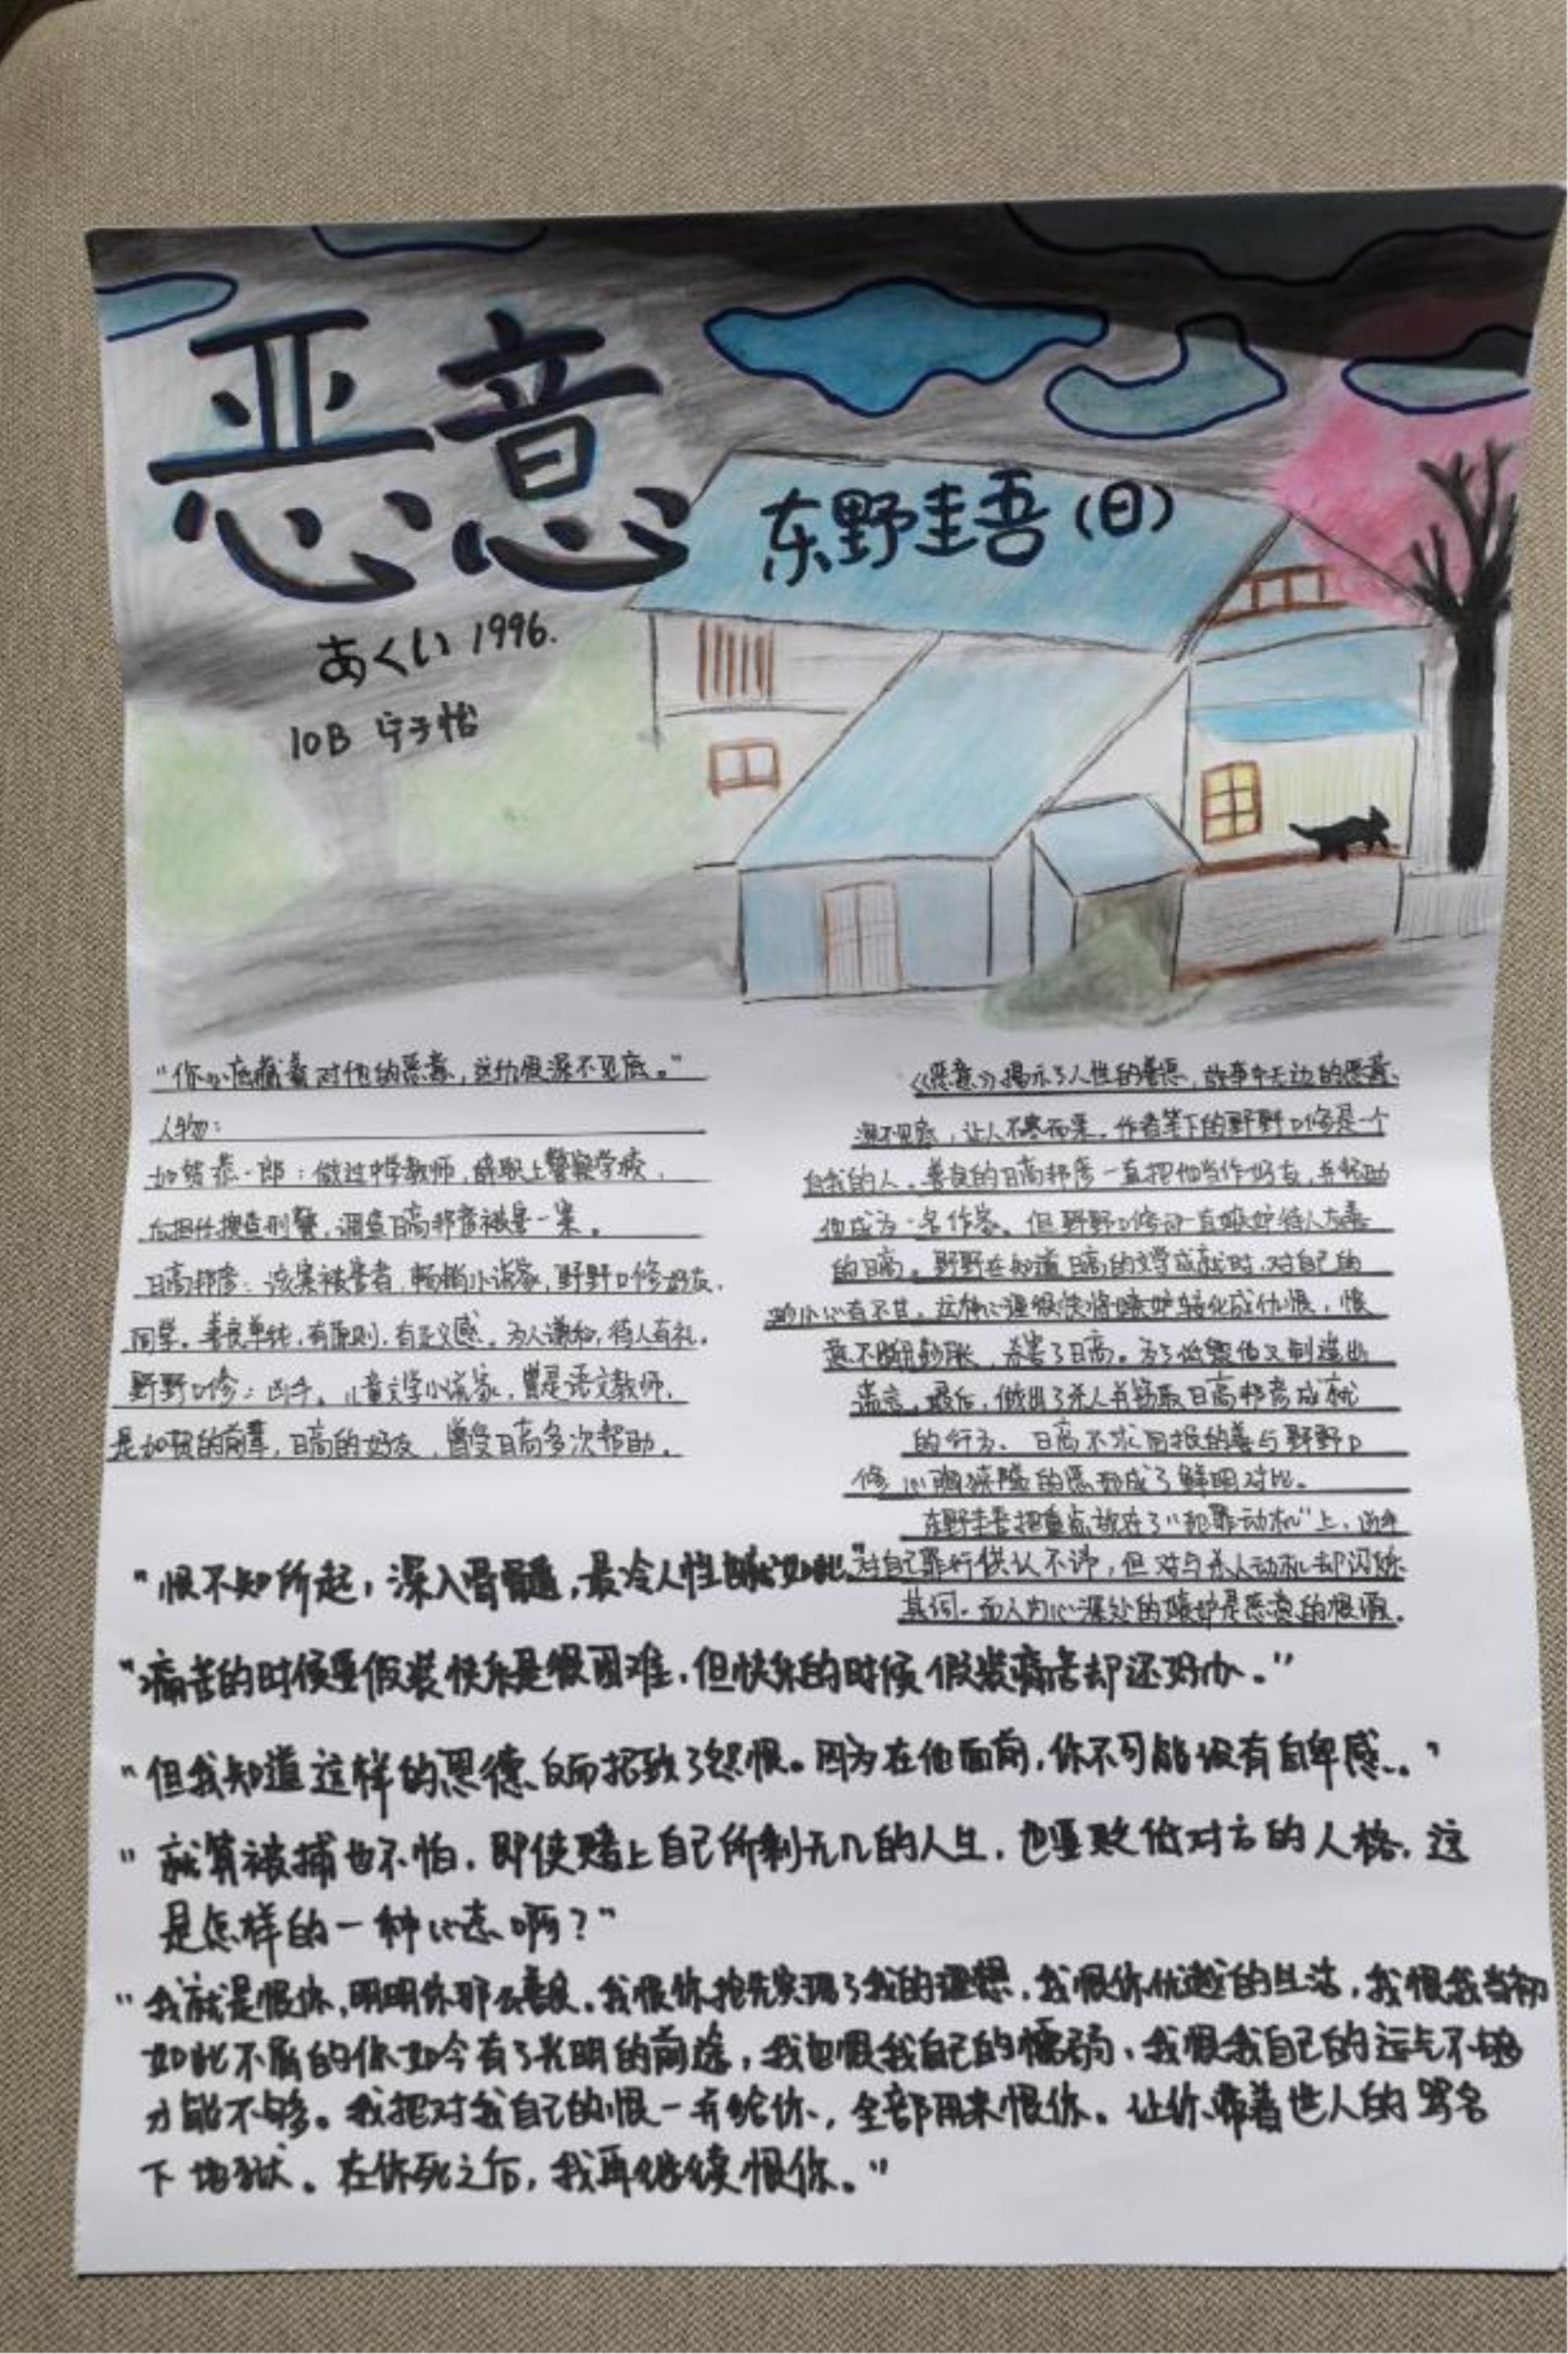 恶意
东野圭吾(日)
あくい 1996.
10B 宁子怡
"你心底藏着对他的恶意,这仇恨深不见底。"
人物:
加贺恭一郎:做过中学教师,辞职上警察学校,
后担任搜查刑警,调查日高邦彦被害一案。
日高邦彦:该案被害者,畅销小说家,野野口修好友,
同学。善良单纯,有原则,有正义感。为人谦和,待人有礼。
野野口修:凶手。儿童文学小说家,曾是语文教师,
是加贺的前辈,日高的好友,曾受日高多次帮助。
《恶意》揭示了人性的善恶,故事中无边的恶意
深不见底,让人不寒而栗。作者笔下的野野口修是一个
自我的人。善良的日高邦彦一直把他当作好友,并帮助
他成为一名作家。但野野口修却一直嫉妒待人友善
的日高。野野在知道日高的文学成就时,对自己的
渺小心有不甘。这种心理很快将嫉妒转化成仇恨,恨
意不断膨胀,杀害了日高。为了诋毁他又制造出
谎言。最后,做出了杀人并窃取日高邦彦成就
的行为。日高不求回报的善与野野口
修心胸狭隘的恶形成了鲜明对比。
东野圭吾把重点放在了"犯罪动机"上,凶手
对自己罪行供认不讳,但对与杀人动机却闪烁
其词。而人内心深处的嫉妒是恶意的根源。
"恨不知所起,深入骨髓,最冷人性也就如此"
"痛苦的时候要假装快乐是很困难,但快乐的时候假装痛苦却还好办。"
"但我知道这样的恩德反而招致了怨恨。因为在他面前,你不可能没有自卑感..。"
"就算被捕也不怕,即使赌上自己所剩无几的人生,也要贬低对方的人格,这
是怎样的一种心态啊?"
"我就是恨你,明明你那么善良。我恨你抢先实现了我的理想,我恨你优越的生活,我恨我当初
如此不屑的你如今有了光明的前途,我也恨我自己的懦弱,我恨我自己的运气不够
才能不够。我把对我自己的恨一并给你,全部用来恨你。让你带着世人的骂名
下地狱。在你死之后,我再继续恨你。"